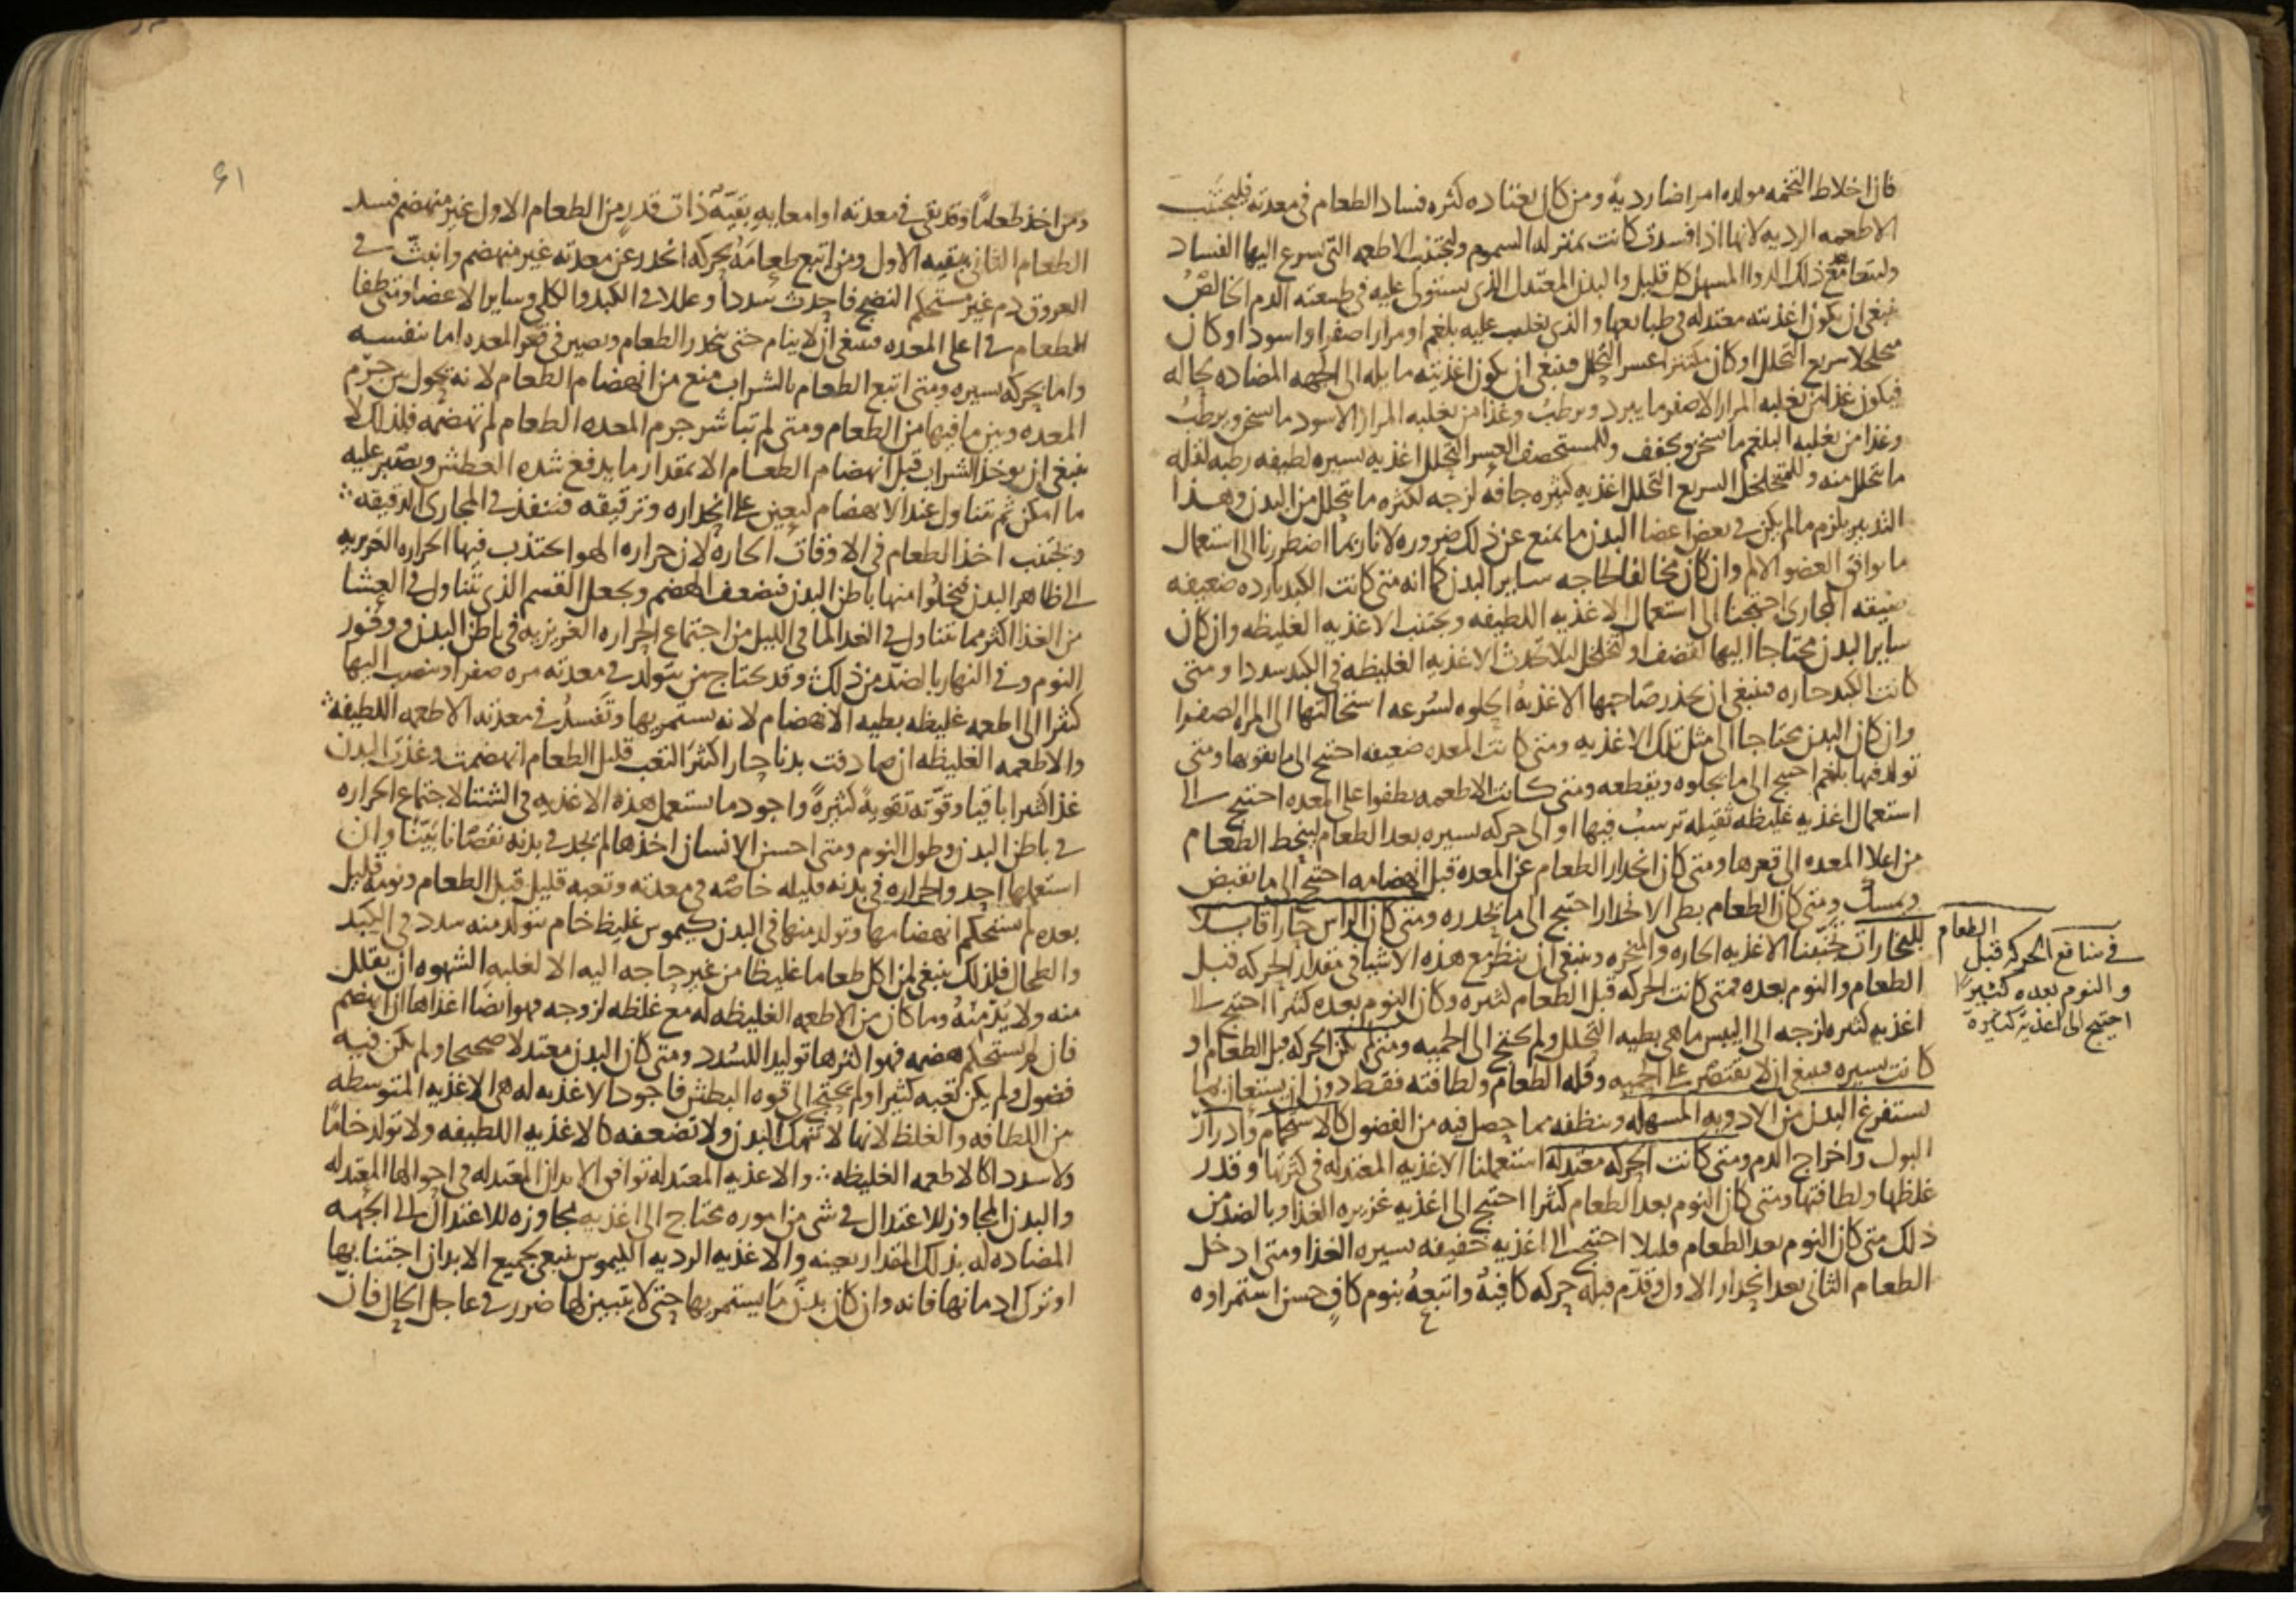 فان اخلاط التخمه مولده امراضا رديه ومن كان يعتاده كثره فساد الطعام في معدته فليجتنب
الاطعمه الرديه لانها اذا فسدت كانت بمنزله السموم وليجتنب الاطعمه التي يسرع اليها الفساد
وليتعاهد مع ذلك الدوا المسهل كل قليل والبدن المعتدل الذي يستولى عليه في طبيعته الدم الخالص
فينبغي ان يكون اغذيته معتدله في طبايعها والذي يغلب عليه بلغم او مرار اصفر او اسود او كان
متخلخلا سريع التحلل او كان مكتنزا عسر التحلل فينبغي ان يكون اغذيته مايله الى الجهه المضاده لحاله
فيكون غذا من يغلبه المرار الاصفر ما يبرد ويرطب وغذا من يغلبه المرار الاسود ما يسخن ويرطب
وغذا من يغلبه البلغم ما يسخن ويجفف وللمستحصف العسر التحلل اغذيه يسيره لطيفه رطبه لقله
ما يتحلل منه وللمتخلخل السريع التحلل اغذيه كثيره جافه لزجه لكثره ما يتحلل من البدن وهذا
التدبير يلزم ما لم يكن في بعض اعضا البدن ما يمنع عن ذلك ضروره لانا ربما اضطررنا الى استعمال
ما يوافق العضو الالم وان كان مخالفا لحاجه ساير البدن كما انه متى كانت الكبد بارده ضعيفه
ضيقه المجاري احتجنا الى استعمال الاغذيه اللطيفه ويجتنب الاغذيه الغليظه وان كان
ساير البدن محتاجا اليها لقضف او تخلخل ليلا تحدث الاغذيه الغليظه في الكبد سددا ومتى
كانت الكبد حاره فينبغي ان يحذر صاحبها الاغذيه الحلوه لسرعه استحالتها الى المره الصفرا
وان كان البدن محتاجا الى مثل تلك الاغذيه ومتى كانت المعده ضعيفه احتيج الى ما يقويها ومتى
تولد فيها بلغم احتيج الى ما يجلوه ويقطعه ومتى كانت الاطعمه يطفوا على المعده احتيج الى
استعمال اغذيه غليظه ثقيله ترسب فيها او الى حركه يسيره بعد الطعام لينحط الطعام
من اعلا المعده الى قعرها ومتى كان انحدار الطعام عن المعده قبل انهضامه احتيج الى ما يقبض
ويمسك ومتى كان الطعام بطي الانحدار احتيج الى ما يحدره ومتى كان الراس حارا قابلا
للبخارات تجنبنا الاغذيه الحاره والمبخره وينبغي ان ينظر مع هذه الاشيا في مقدار الحركه قبل
الطعام والنوم بعده فمتى كانت الحركه قبل الطعام كثيره وكان النوم بعده كثيرا احتيج الى
اغذيه كثيره لزجه الى اليبس ماهي بطيه التحلل ولم يحتج الى الحميه ومتى لم تكن الحركه قبل الطعام او
كانت يسيره فينبغي ان لا يقتصر على الحميه وقله الطعام ولطافته فقط دون ان يستعان بما
يستفرغ البدن من الادويه المسهله وينظفه مما حصل فيه من الفضول كالاستحمام وادرار
البول واخراج الدم ومتى كانت الحركه معتدله استعملنا الاغذيه المعتدله في كثرتها وقدر
غلظها ولطافتها ومتى كان النوم بعد الطعام كثيرا احتيج الى اغذيه غزيره الغذا وبالضد من
ذلك متى كان النوم بعد الطعام قليلا احتيج الى اغذيه خفيفه يسيره الغذا ومتى ادخل
الطعام الثاني بعد انحدار الاول وقدم قبله حركه كافيه واتبعه بنوم كاف حسن استمراوه
في منافع الحركه قبل الطعام
والنوم بعده كثيرا
احتيج الى اغذية كثيرة
٤١
ومن اخذ طعاما وقد بقى في معدته او امعايه بقيه ذات قدر من الطعام الاول غير منهضم فسد
الطعام الثاني ببقيه الاول ومن اتبع طعامه بحركه انحدر عن معدته غير منهضم وانبث في
العروق دم غير مستحكم النضج فاحدث سددا وعللا في الكبد والكلى وساير الاعضا ومتى طفا
الطعام في اعلى المعده فينبغي ان لا ينام حتى ينحدر الطعام ويصير في قعر المعده اما بنفسه
واما بحركه يسيره ومتى اتبع الطعام بالشراب منع من انهضام الطعام لانه يحول بين جرم
المعده وبين ما فيها من الطعام ومتى لم تباشر جرم المعده الطعام لم تهضمه فلذلك لا
ينبغي ان يوخذ الشراب قبل انهضام الطعام الا بمقدار ما يدفع شده العطش ويصبر عليه
ما امكن ثم يتناول عند الانهضام ليعين على انحداره وترقيقه فينفذ في المجاري الدقيقه
ويجتنب اخذ الطعام في الاوقات الحاره لان حراره الهوا يجتذب فيها الحراره الغريزيه
الى ظاهر البدن فيخلوا منها باطن البدن فيضعف الهضم ويجعل القسم الذي يتناول في العشا
من الغذا اكثر مما يتناول في الغدا لما في الليل من اجتماع الحراره الغريزيه في باطن البدن ووفور
النوم وفي النهار بالضد من ذلك وقد يحتاج من يتولد في معدته مره صفرا او ينصب اليها
كثيرا الى اطعمه غليظه بطيه الانهضام لانه يستمريها وتفسد في معدته الاطعمه اللطيفه
والاطعمه الغليظه ان صادفت بدنا حارا كثير التعب قليل الطعام انهضمت وغذت البدن
غذا كثيرا باقيا وقوته تقوية كثيرة واجود ما يستعمل هذه الاغذيه في الشتا لاجتماع الحراره
في باطن البدن وطول النوم ومتى احسن الانسان اخذها لم يجد في بدنه نقصانا بينا وان
استعملها احد والحراره في بدنه قليله خاصه في معدته وتعبه قليل قبل الطعام ونومه قليل
بعده لم يستحكم انهضامها وتولد منها في البدن كيموس غليظ خام يتولد منه سدد في الكبد
والطحال فلذلك ينبغي لمن اكل طعاما غليظا من غير حاجه اليه الا لغلبه الشهوه ان يقلل
منه ولا يدمنه وما كان من الاطعمه الغليظه له مع غلظه لزوجه فهو ايضا اغذاها ان انهضم
فان لم يستحكم هضمه فهو اكثرها توليدا للسدد ومتى كان البدن معتدلا صحيحا ولم يكن فيه
فضول ولم يكن تعبه كثيرا ولم يحتج الى قوه البطش فاجود الاغذيه له هي الاغذيه المتوسطه
من اللطافه والغلظ لانها لا تنهك البدن ولا تضعفه كالاغذيه اللطيفه ولا تولد خاما
ولا سددا كالاطعمه الغليظه والاغذيه المعتدله توافق الابدان المعتدله في احوالها المعتدله
والبدن المجاوز للاعتدال في شي من اموره يحتاج الى اغذيه مجاوزه للاعتدال الى الجهه
المضاده له بذلك المقدار بعينه والاغذيه الرديه الكيموس ينبغي لجميع الابدان اجتنابها
او ترك ادمانها فانه وان كان بدن ما يستمريها حتى لا يتبين لها ضرر في عاجل الحال فان